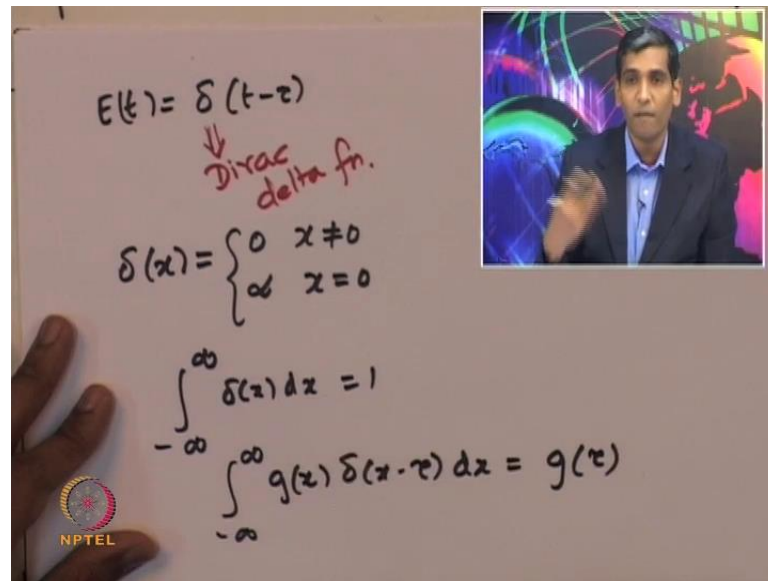 E(t) = δ (t-τ)
⇓
Dirac
delta fn.
δ(x) = { 0 x ≠ 0
∝ x = 0
∫_{-∞}^{∞} δ(x) dx = 1
∫_{-∞}^{∞} g(x) δ(x-τ) dx = g(τ)
NPTEL